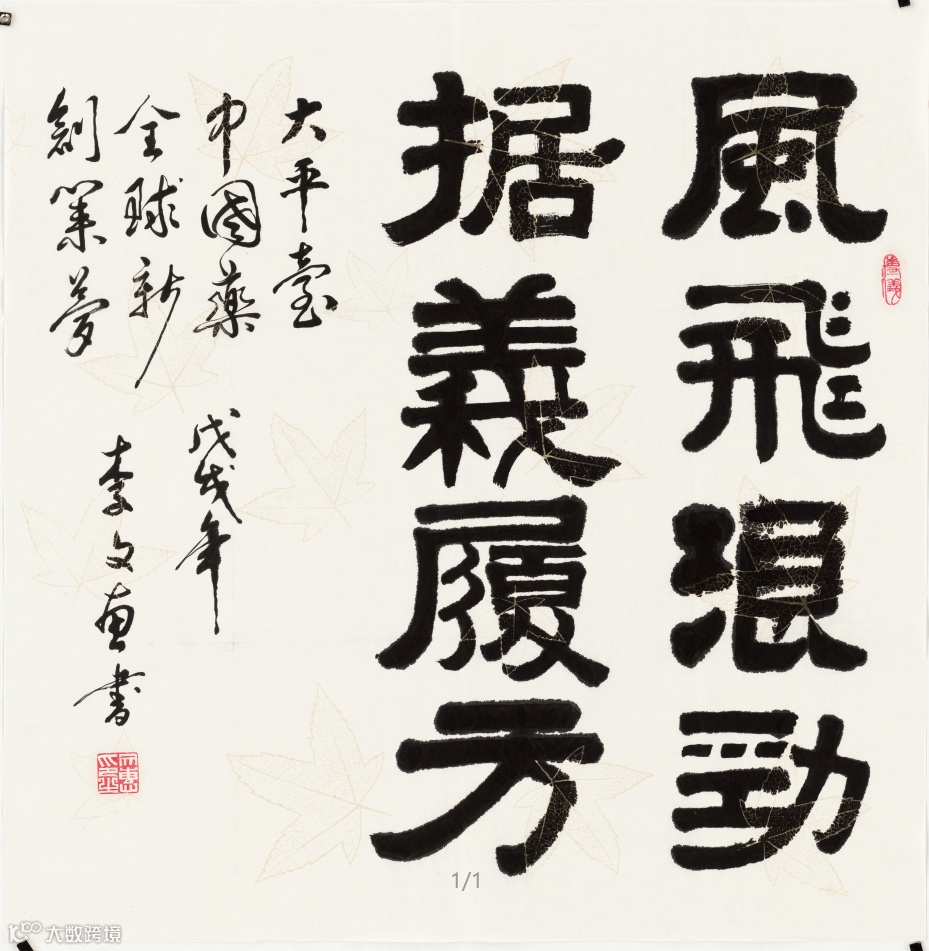 風飛浪勁
据義履方
大平臺
中國藥
全球新
創業夢
戊戌年
李文惠書
1/1
大数跨境